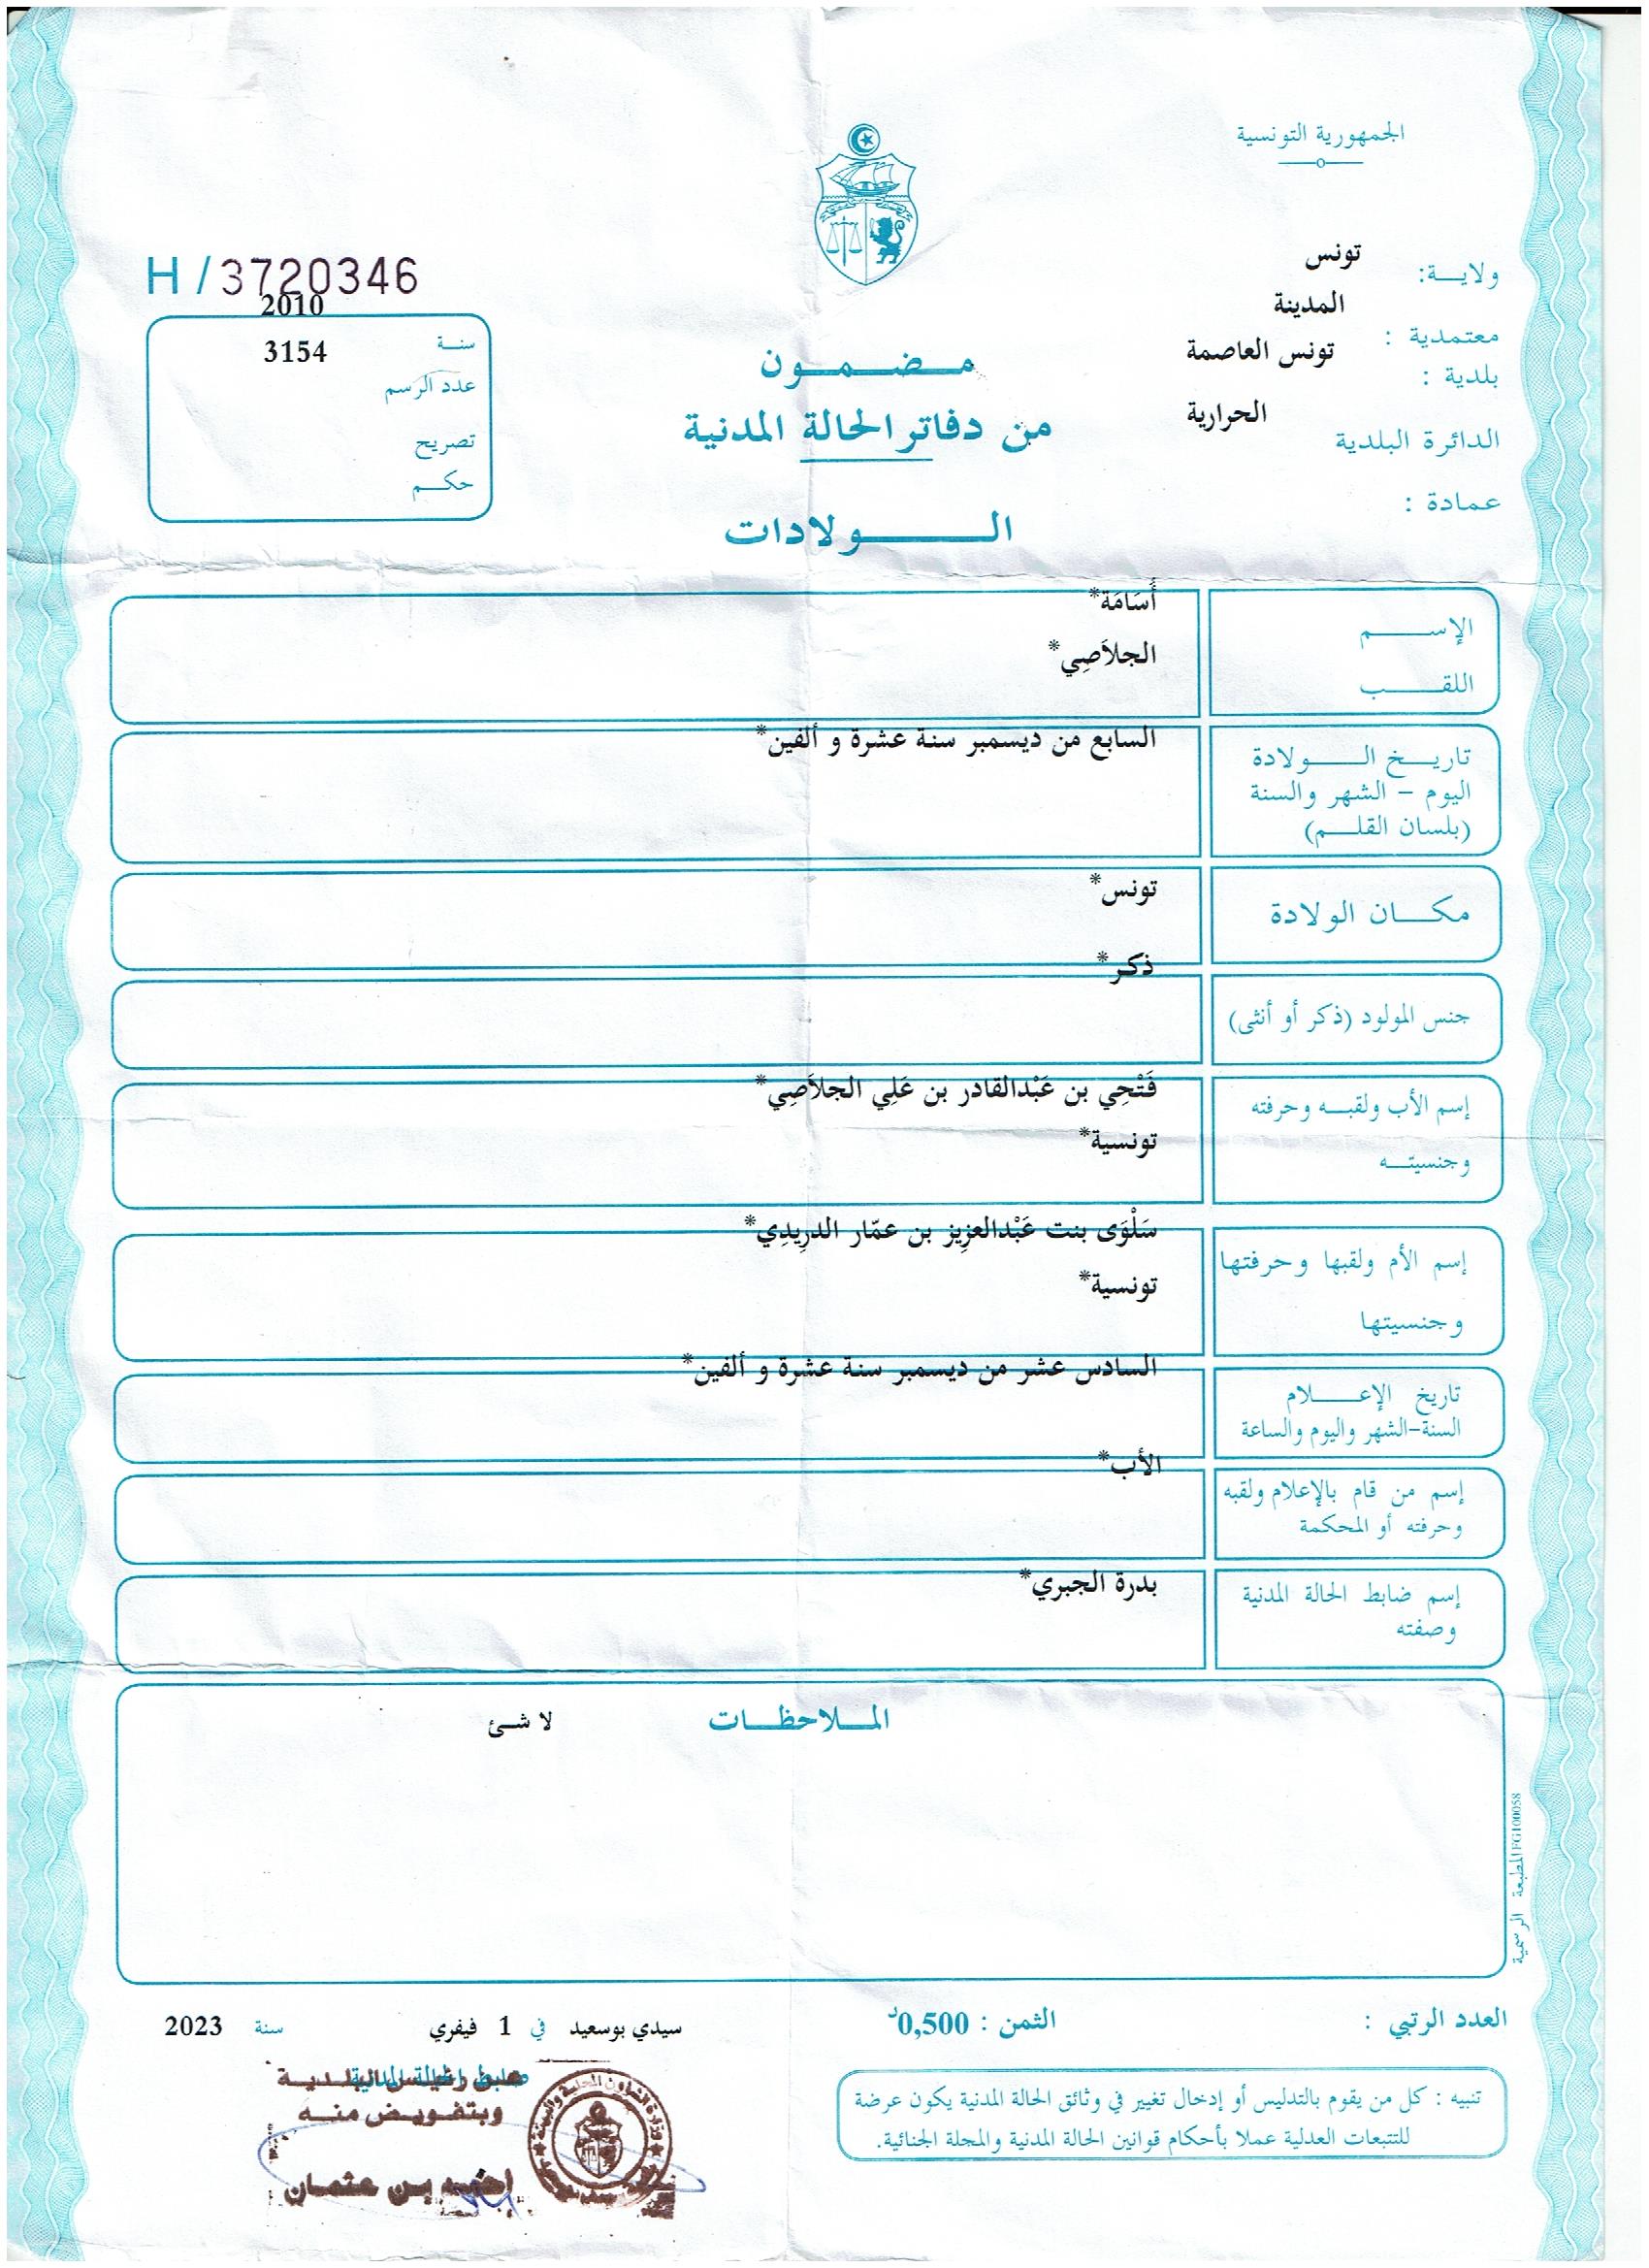 الجمهورية التونسية
ولاية: تونس
معتمدية : المدينة
بلدية : تونس العاصمة
الدائرة البلدية الحرارية
عمادة :
H / 3720346
سنة 2010
عدد الرسم 3154
تصريح
حكم
مضمون
من دفاتر الحالة المدنية
الولادات
الإسم أُسَامَة*
اللقب الجلاَصِي*
تاريخ الولادة السابع من ديسمبر سنة عشرة و ألفين*
اليوم – الشهر والسنة
(بلسان القلم)
مكان الولادة تونس*
جنس المولود (ذكر أو أنثى) ذكر*
إسم الأب ولقبه وحرفته فَتْحِي بن عَبْدالقادر بن عَلِي الجلاَصِي*
وجنسيته تونسية*
إسم الأم ولقبها وحرفتها سَلْوَى بنت عَبْدالعزِيز بن عمّار الدرِيدِي*
وجنسيتها تونسية*
تاريخ الإعلام السادس عشر من ديسمبر سنة عشرة و ألفين*
السنة-الشهر واليوم والساعة
إسم من قام بالإعلام ولقبه الأب*
وحرفته أو المحكمة
إسم ضابط الحالة المدنية بدرة الجبري*
وصفته
الملاحظات لا شئ
المطبعة الرسمية FG100058
العدد الرتبي :
الثمن : 0,500د
سيدي بوسعيد في 1 فيفري سنة 2023
ضابط الحالة المدنية
عن رئيس البلدية
وبتفويض منه
احمد بن عثمان
تنبيه : كل من يقوم بالتدليس أو إدخال تغيير في وثائق الحالة المدنية يكون عرضة
للتتبعات العدلية عملا بأحكام قوانين الحالة المدنية والمجلة الجنائية.